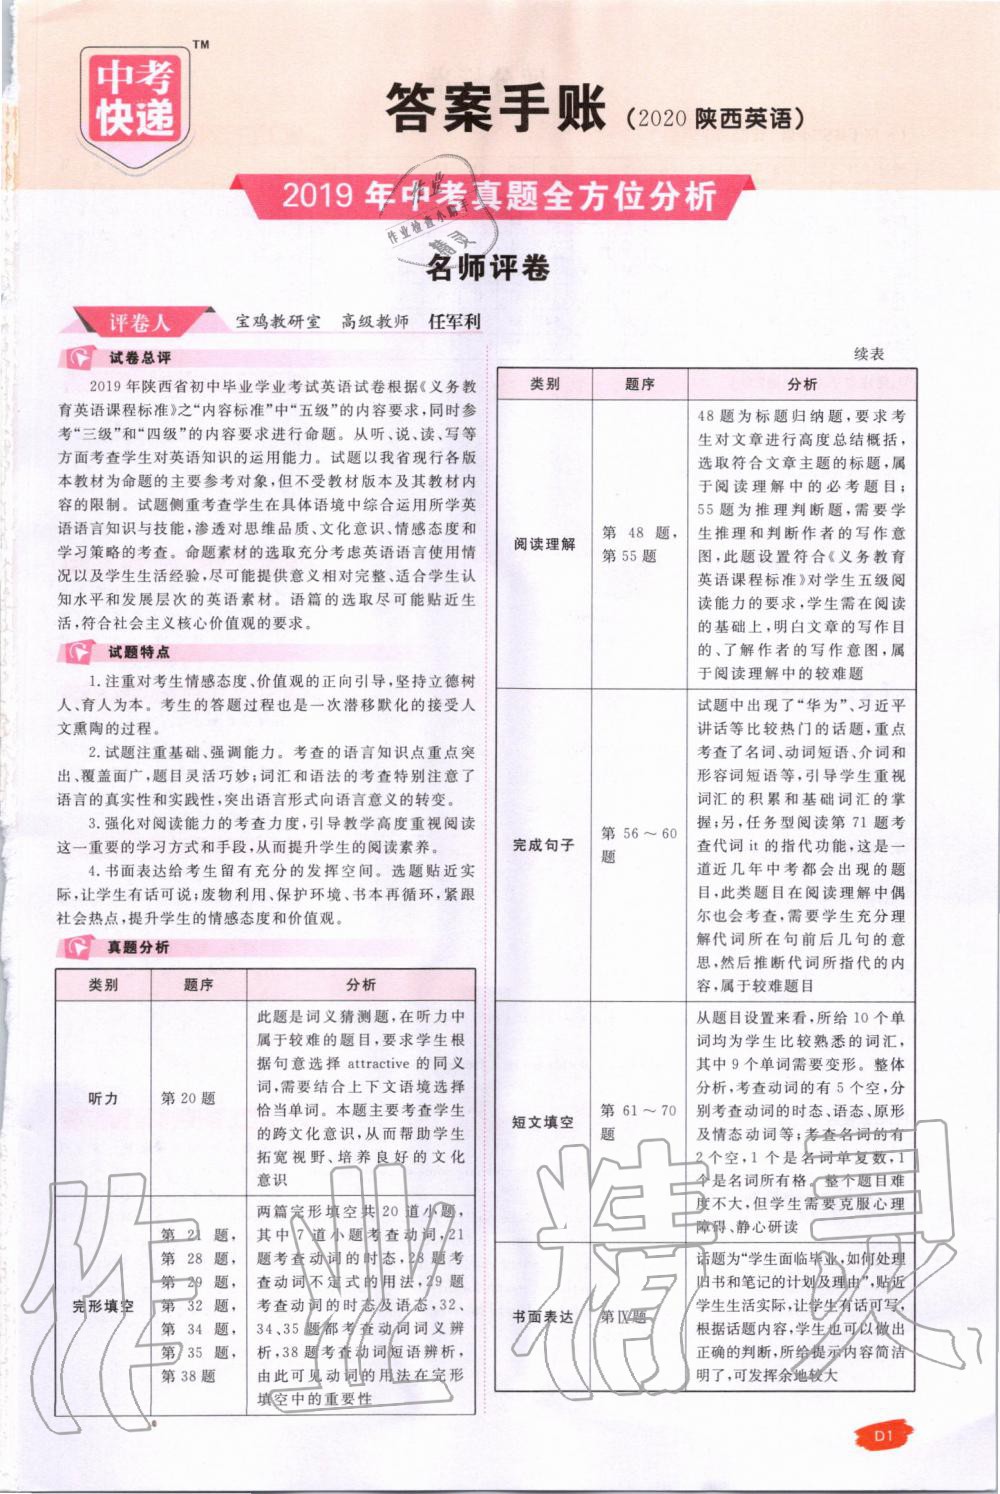 中考
快递
TM
答案手账(2020 陕西英语)
2019 年中考真题全方位分析
作业
作业检查小助手
精灵
名师评卷
评卷人 宝鸡教研室 高级教师 任军利
试卷总评
2019 年陕西省初中毕业学业考试英语试卷根据《义务教
育英语课程标准》之“内容标准”中“五级”的内容要求,同时参
考“三级”和“四级”的内容要求进行命题。从听、说、读、写等
方面考查学生对英语知识的运用能力。试题以我省现行各版
本教材为命题的主要参考对象,但不受教材版本及其教材内容
的限制。试题侧重考查学生在具体语境中综合运用所学英
语语言知识与技能,渗透对思维品质、文化意识、情感态度和
学习策略的考查。命题素材的选取充分考虑英语语言使用情
况以及学生生活经验,尽可能提供意义相对完整、适合学生认
知水平和发展层次的英语素材。语篇的选取尽可能贴近生
活,符合社会主义核心价值观的要求。
试题特点
1. 注重对考生情感态度、价值观的正向引导,坚持立德树
人、育人为本。考生的答题过程也是一次潜移默化的接受人
文熏陶的过程。
2. 试题注重基础、强调能力。考查的语言知识点重点突
出、覆盖面广,题目灵活巧妙;词汇和语法的考查特别注意了
语言的真实性和实践性,突出语言形式向语言意义的转变。
3. 强化对阅读能力的考查力度,引导教学高度重视阅读
这一重要的学习方式和手段,从而提升学生的阅读素养。
4. 书面表达给考生留有充分的发挥空间。选题贴近实
际,让学生有话可说;废物利用、保护环境、书本再循环,紧跟
社会热点,提升学生的情感态度和价值观。
真题分析
类别 题序 分析
听力
第 20 题
此题是词义猜测题,在听力中
属于较难的题目,要求学生根
据句意选择 attractive 的同义
词,需要结合上下文语境选择
恰当单词。本题主要考查学生
的跨文化意识,从而帮助学生
拓宽视野、培养良好的文化
意识
完形填空
第 21 题,
第 28 题,
第 29 题,
第 32 题,
第 34 题,
第 35 题,
第 38 题
两篇完形填空共 20 道小题,
其中 7 道小题考查动词,21
题考查动词的时态,28 题考
查动词不定式的用法,29 题
考查动词的时态及语态,32、
34、35 题都考查动词词义辨
析,38 题考查动词短语辨析,
由此可见动词的用法在完形
填空中的重要性
续表
类别 题序 分析
阅读理解
第 48 题,
第 55 题
48 题为标题归纳题,要求考
生对文章进行高度总结概括,
选取符合文章主题的标题,属
于阅读理解中的必考题目;
55 题为推理判断题,需要学
生推理和判断作者的写作意
图,此题设置符合《义务教育
英语课程标准》对学生五级阅
读能力的要求,学生需在阅读
的基础上,明白文章的写作目
的、了解作者的写作意图,属
于阅读理解中的较难题
完成句子
第 56～60
题
试题中出现了“华为”、习近平
讲话等比较热门的话题,重点
考查了名词、动词短语、介词和
形容词短语等,引导学生重视
词汇的积累和基础词汇的掌
握;另,任务型阅读第 71 题考
查代词 it 的指代功能,这是一
道近几年中考都会出现的题
目,此类题目在阅读理解中偶
尔也会考查,需要学生充分理
解代词所在句前后几句的意
思,然后推断代词所指代的内
容,属于较难题目
短文填空
第 61～70
题
从题目设置来看,所给 10 个单
词均为学生比较熟悉的词汇,
其中 9 个单词需要变形。整体
分析,考查动词的有 5 个空,分
别考查动词的时态、语态、原形
及情态动词等;考查名词的有
2 个空,1 个是名词单复数,1
个是名词所有格。整个题目难
度不大,但学生需要克服心理
障碍、静心研读
书面表达
第Ⅳ题
话题为“学生面临毕业,如何处理
旧书和笔记的计划及理由”,贴近
学生生活实际,让学生有话可写,
根据话题内容,学生也可以做出
正确的判断,所给提示内容简洁
明了,可发挥余地较大
作业精灵
D1